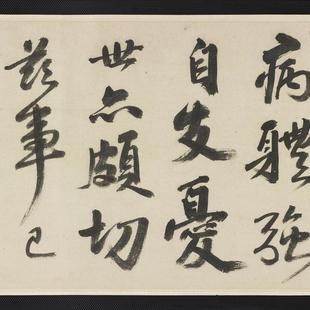 病體強
自支憂
世亦頗切
茲事已